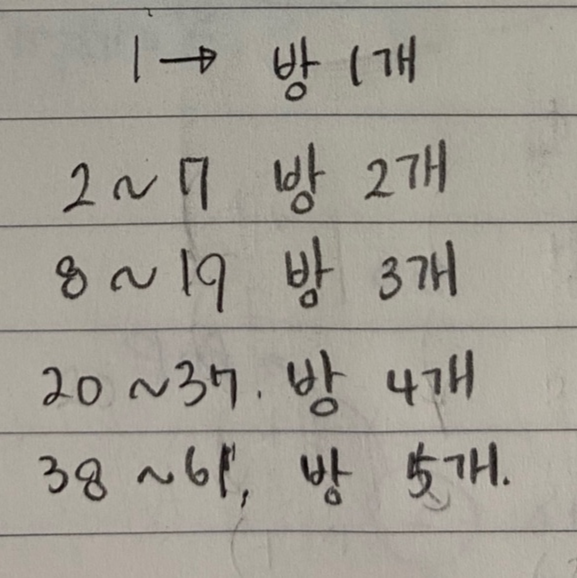 1 → 방 1개
2 ~ 7 방 2개
8 ~ 19 방 3개
20 ~37. 방 4개
38 ~61, 방 5개.